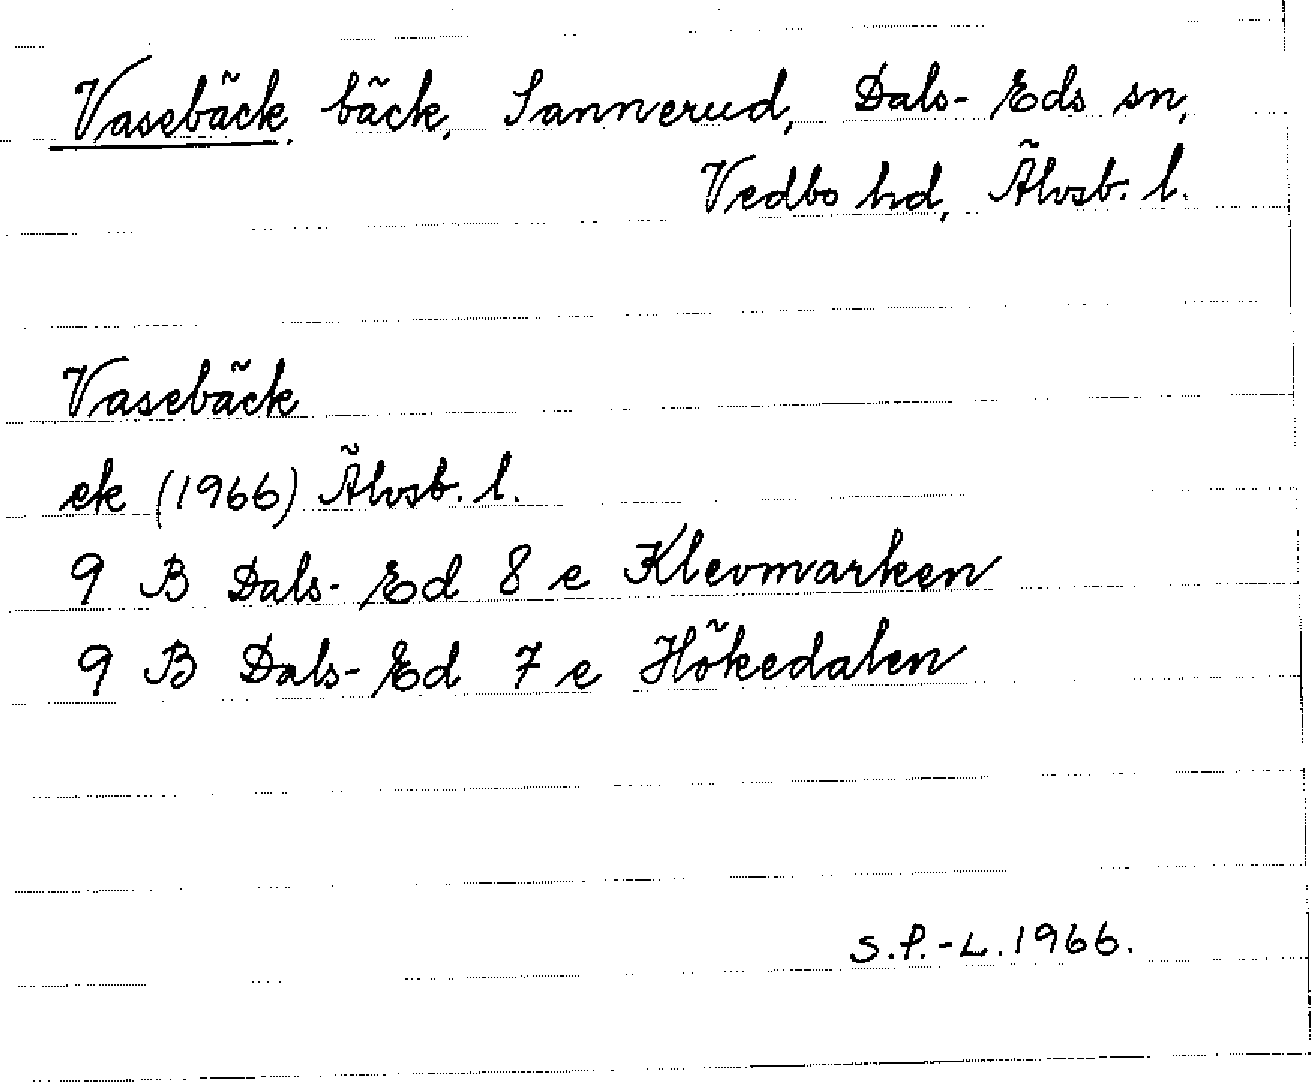 Vasebäck, bäck, Sannerud, Dals-Eds sn,
Vedbo hd, Älvsb. l.
Vasebäck
ek (1966) Älvsb. l.
9 B Dals-Ed 8 e Klevmarken
9 B Dals-Ed 7 e Hökedalen
S.P.-L. 1966.